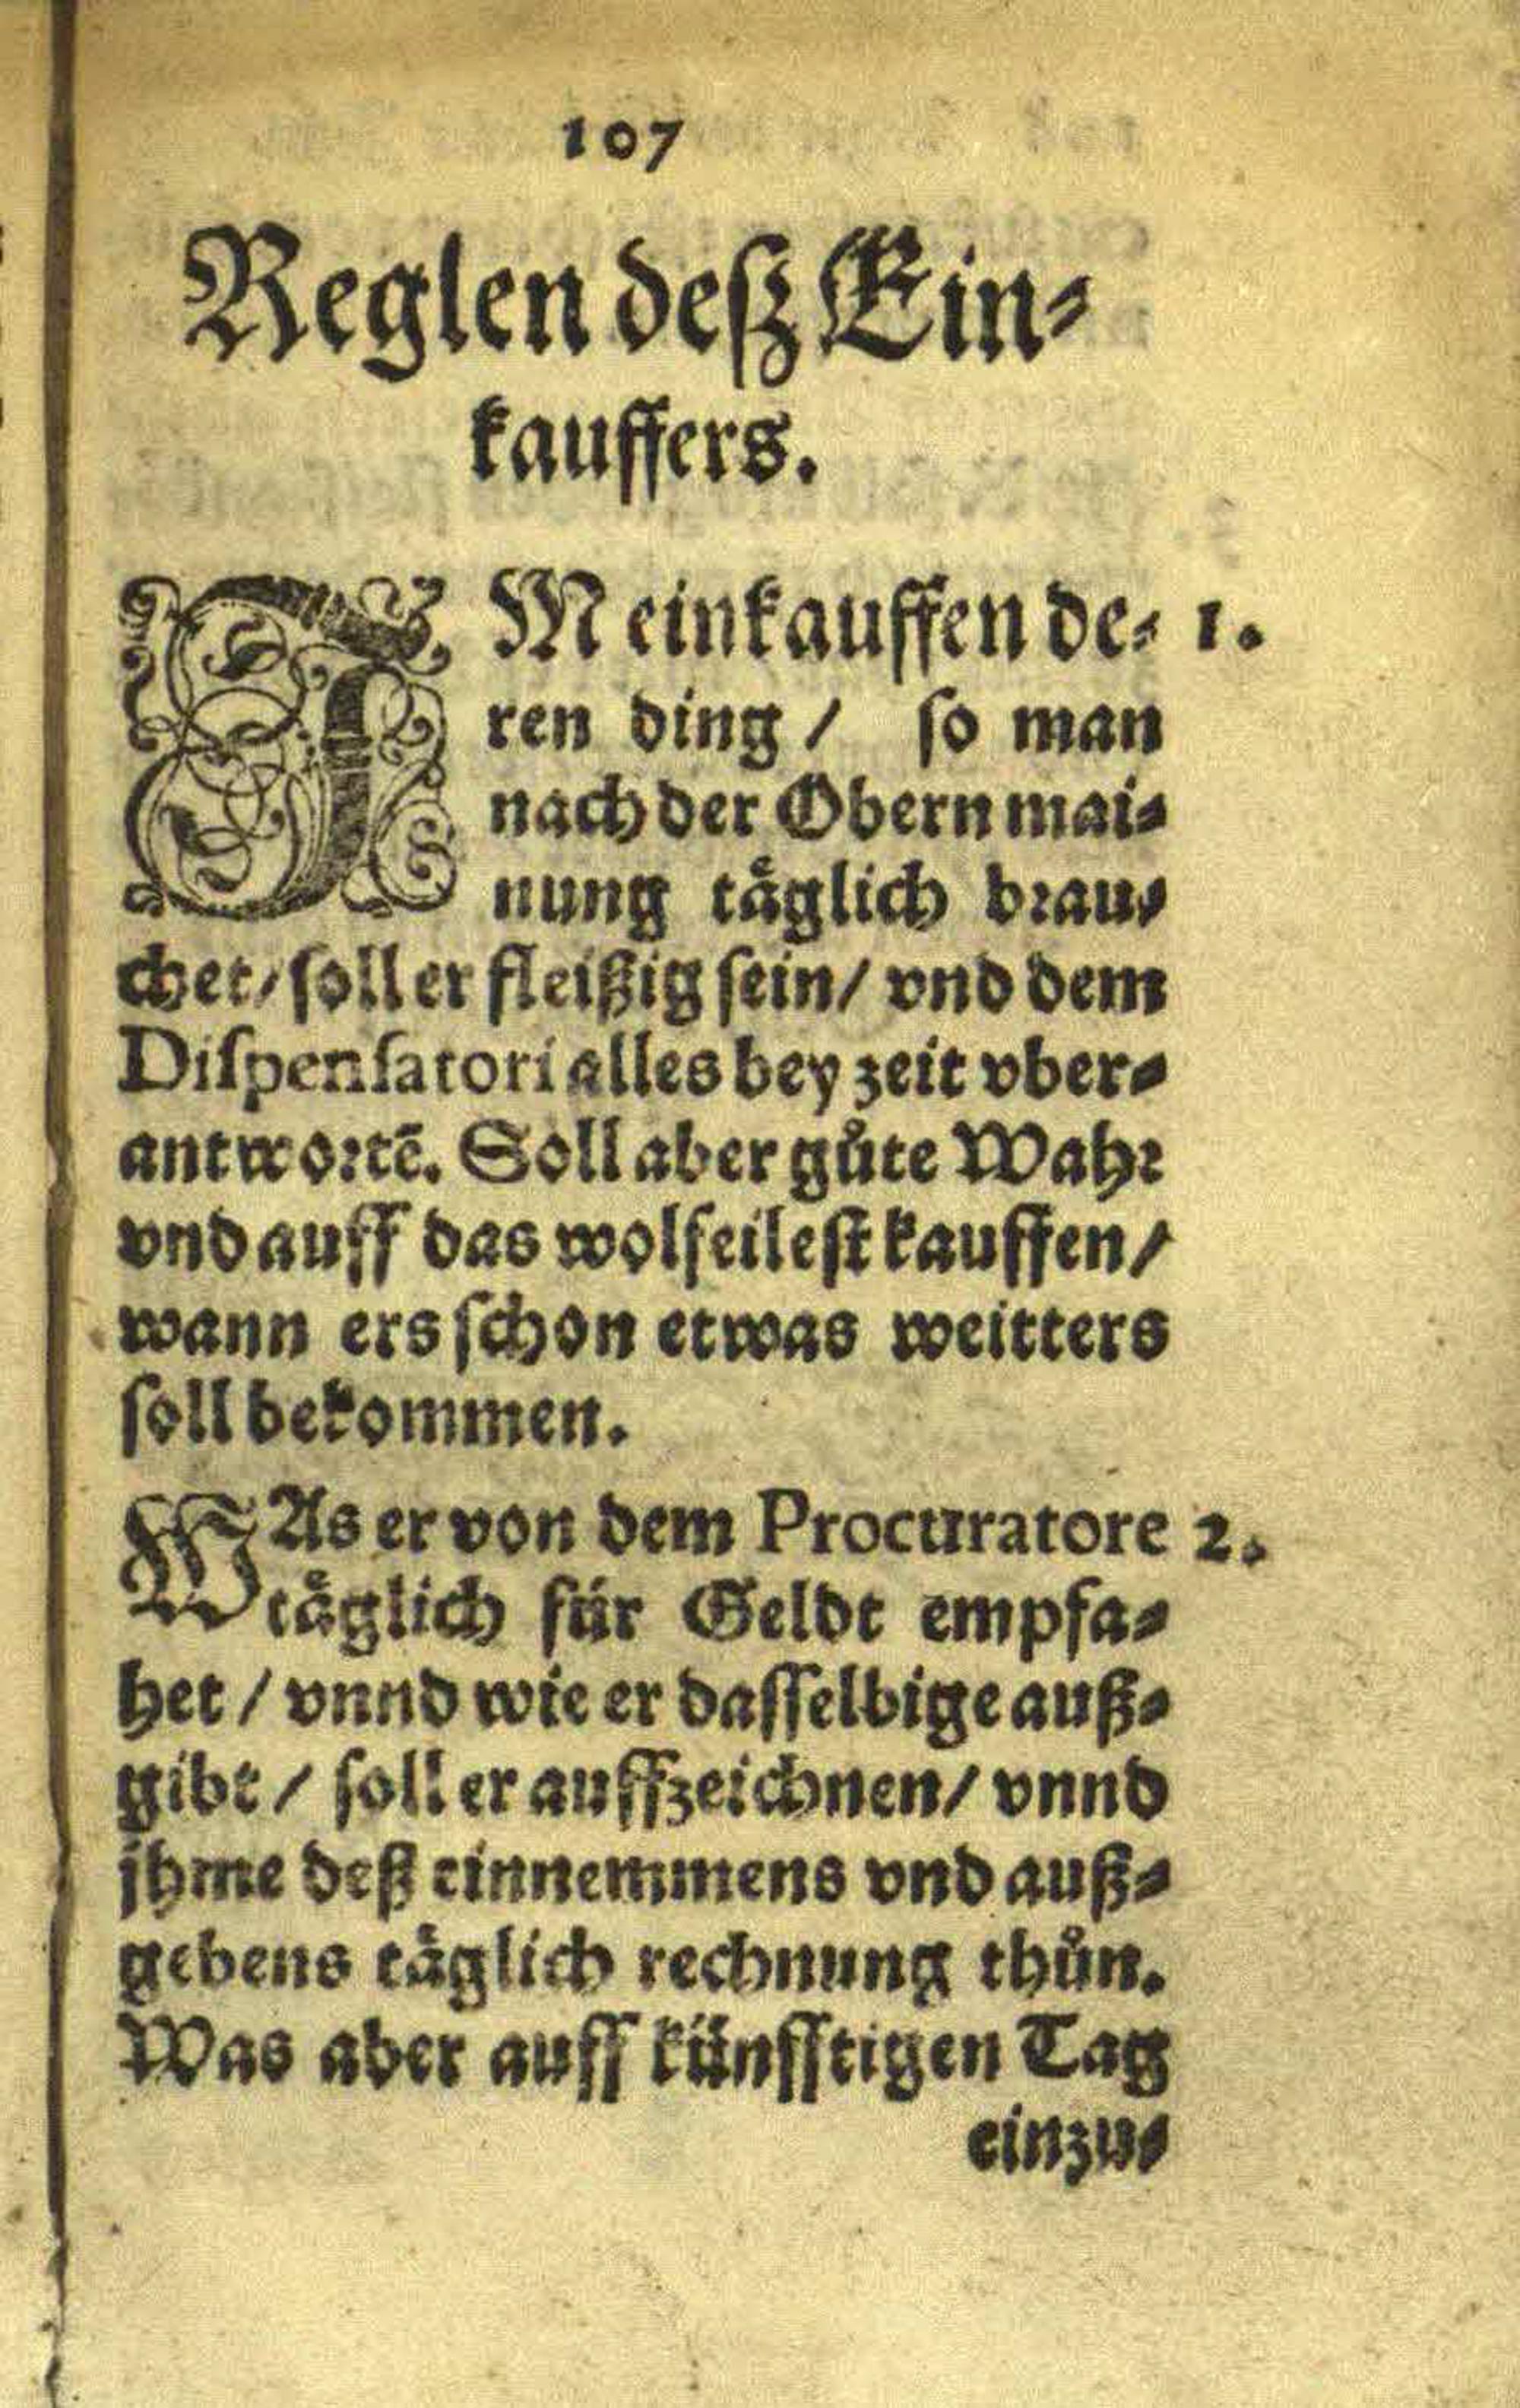 107
Reglen deß Ein⸗
kauffers.
IM einkauffen de⸗ 1.
ren ding / so man
nach der Obern mai⸗
nung tåglich brau⸗
chet / soll er fleißig sein / vnd dem
Dispensatori alles bey zeit vber⸗
antwortē. Soll aber gůte Wahr
vnd auff das wolfeilest kauffen /
wann ers schon etwas weitters
soll bekommen.
WAs er von dem Procuratore 2.
tåglich für Geldt empfa⸗
het / vnnd wie er dasselbige auß⸗
gibt / soll er auffzeichnen / vnnd
jhme deß einnemmens vnd auß⸗
gebens tåglich rechnung thůn.
Was aber auff künfftigen Tag
einzu⸗